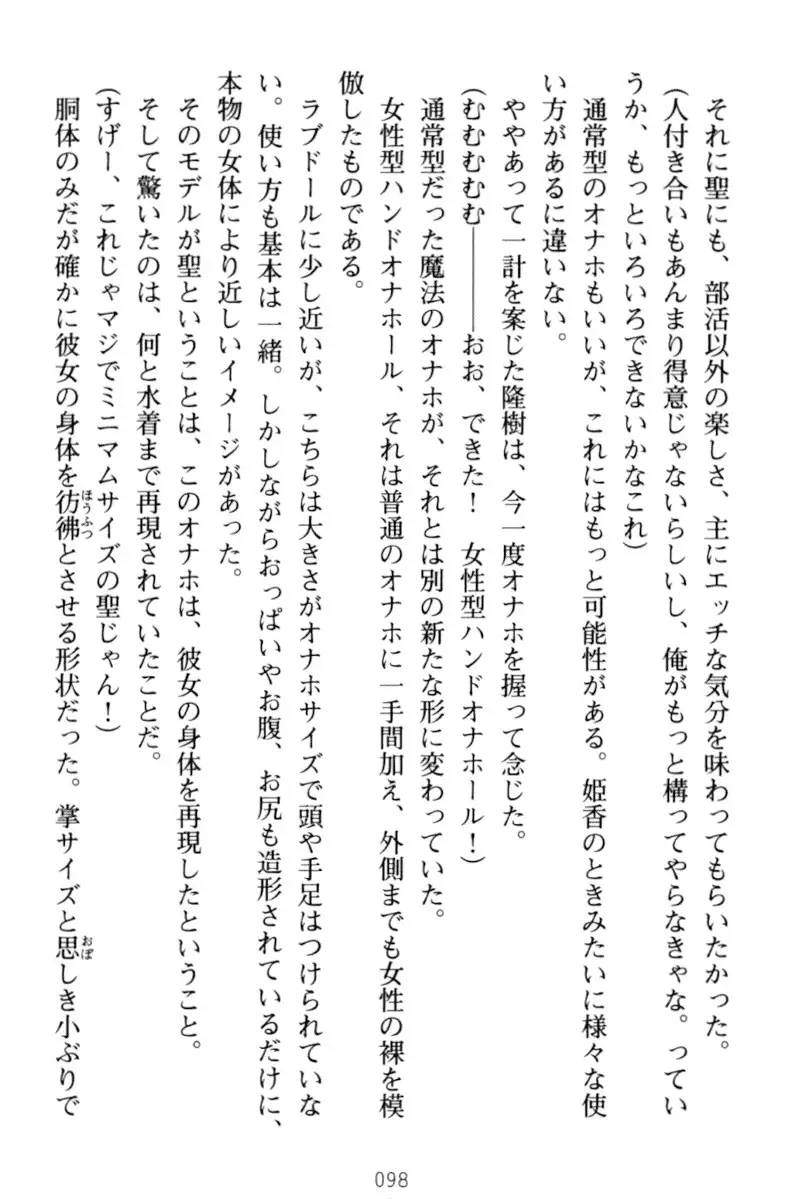 それに聖にも、部活以外の楽しさ、主にエッチな気分を味わってもらいたかった。
(人付き合いもあんまり得意じゃないらしいし、俺がもっと構ってやらなきゃな。ってい
うか、もっといろいろできないかなこれ)
通常型のオナホもいいが、これにはもっと可能性がある。姫香のときみたいに様々な使
い方があるに違いない。
ややあって一計を案じた隆樹は、今一度オナホを握って念じた。
(むむむむむ————おお、できた！　女性型ハンドオナホール！)
通常型だった魔法のオナホが、それとは別の新たな形に変わっていた。
女性型ハンドオナホール、それは普通のオナホに一手間加え、外側までも女性の裸を模
倣したものである。
ラブドールに少し近いが、こちらは大きさがオナホサイズで頭や手足はつけられていな
い。使い方も基本は一緒。しかしながらおっぱいやお腹、お尻も造形されているだけに、
本物の女体により近しいイメージがあった。
そのモデルが聖ということは、このオナホは、彼女の身体を再現したということ。
そして驚いたのは、何と水着まで再現されていたことだ。
(すげー、これじゃマジでミニマムサイズの聖じゃん！)
胴体のみだが確かに彼女の身体を彷彿ほうふつとさせる形状だった。掌サイズと思おぼしき小ぶりで
098